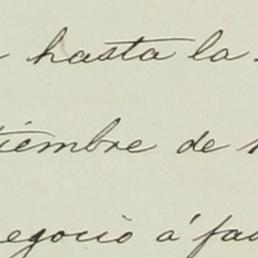 hasta la
tiembre de
egocio á fa